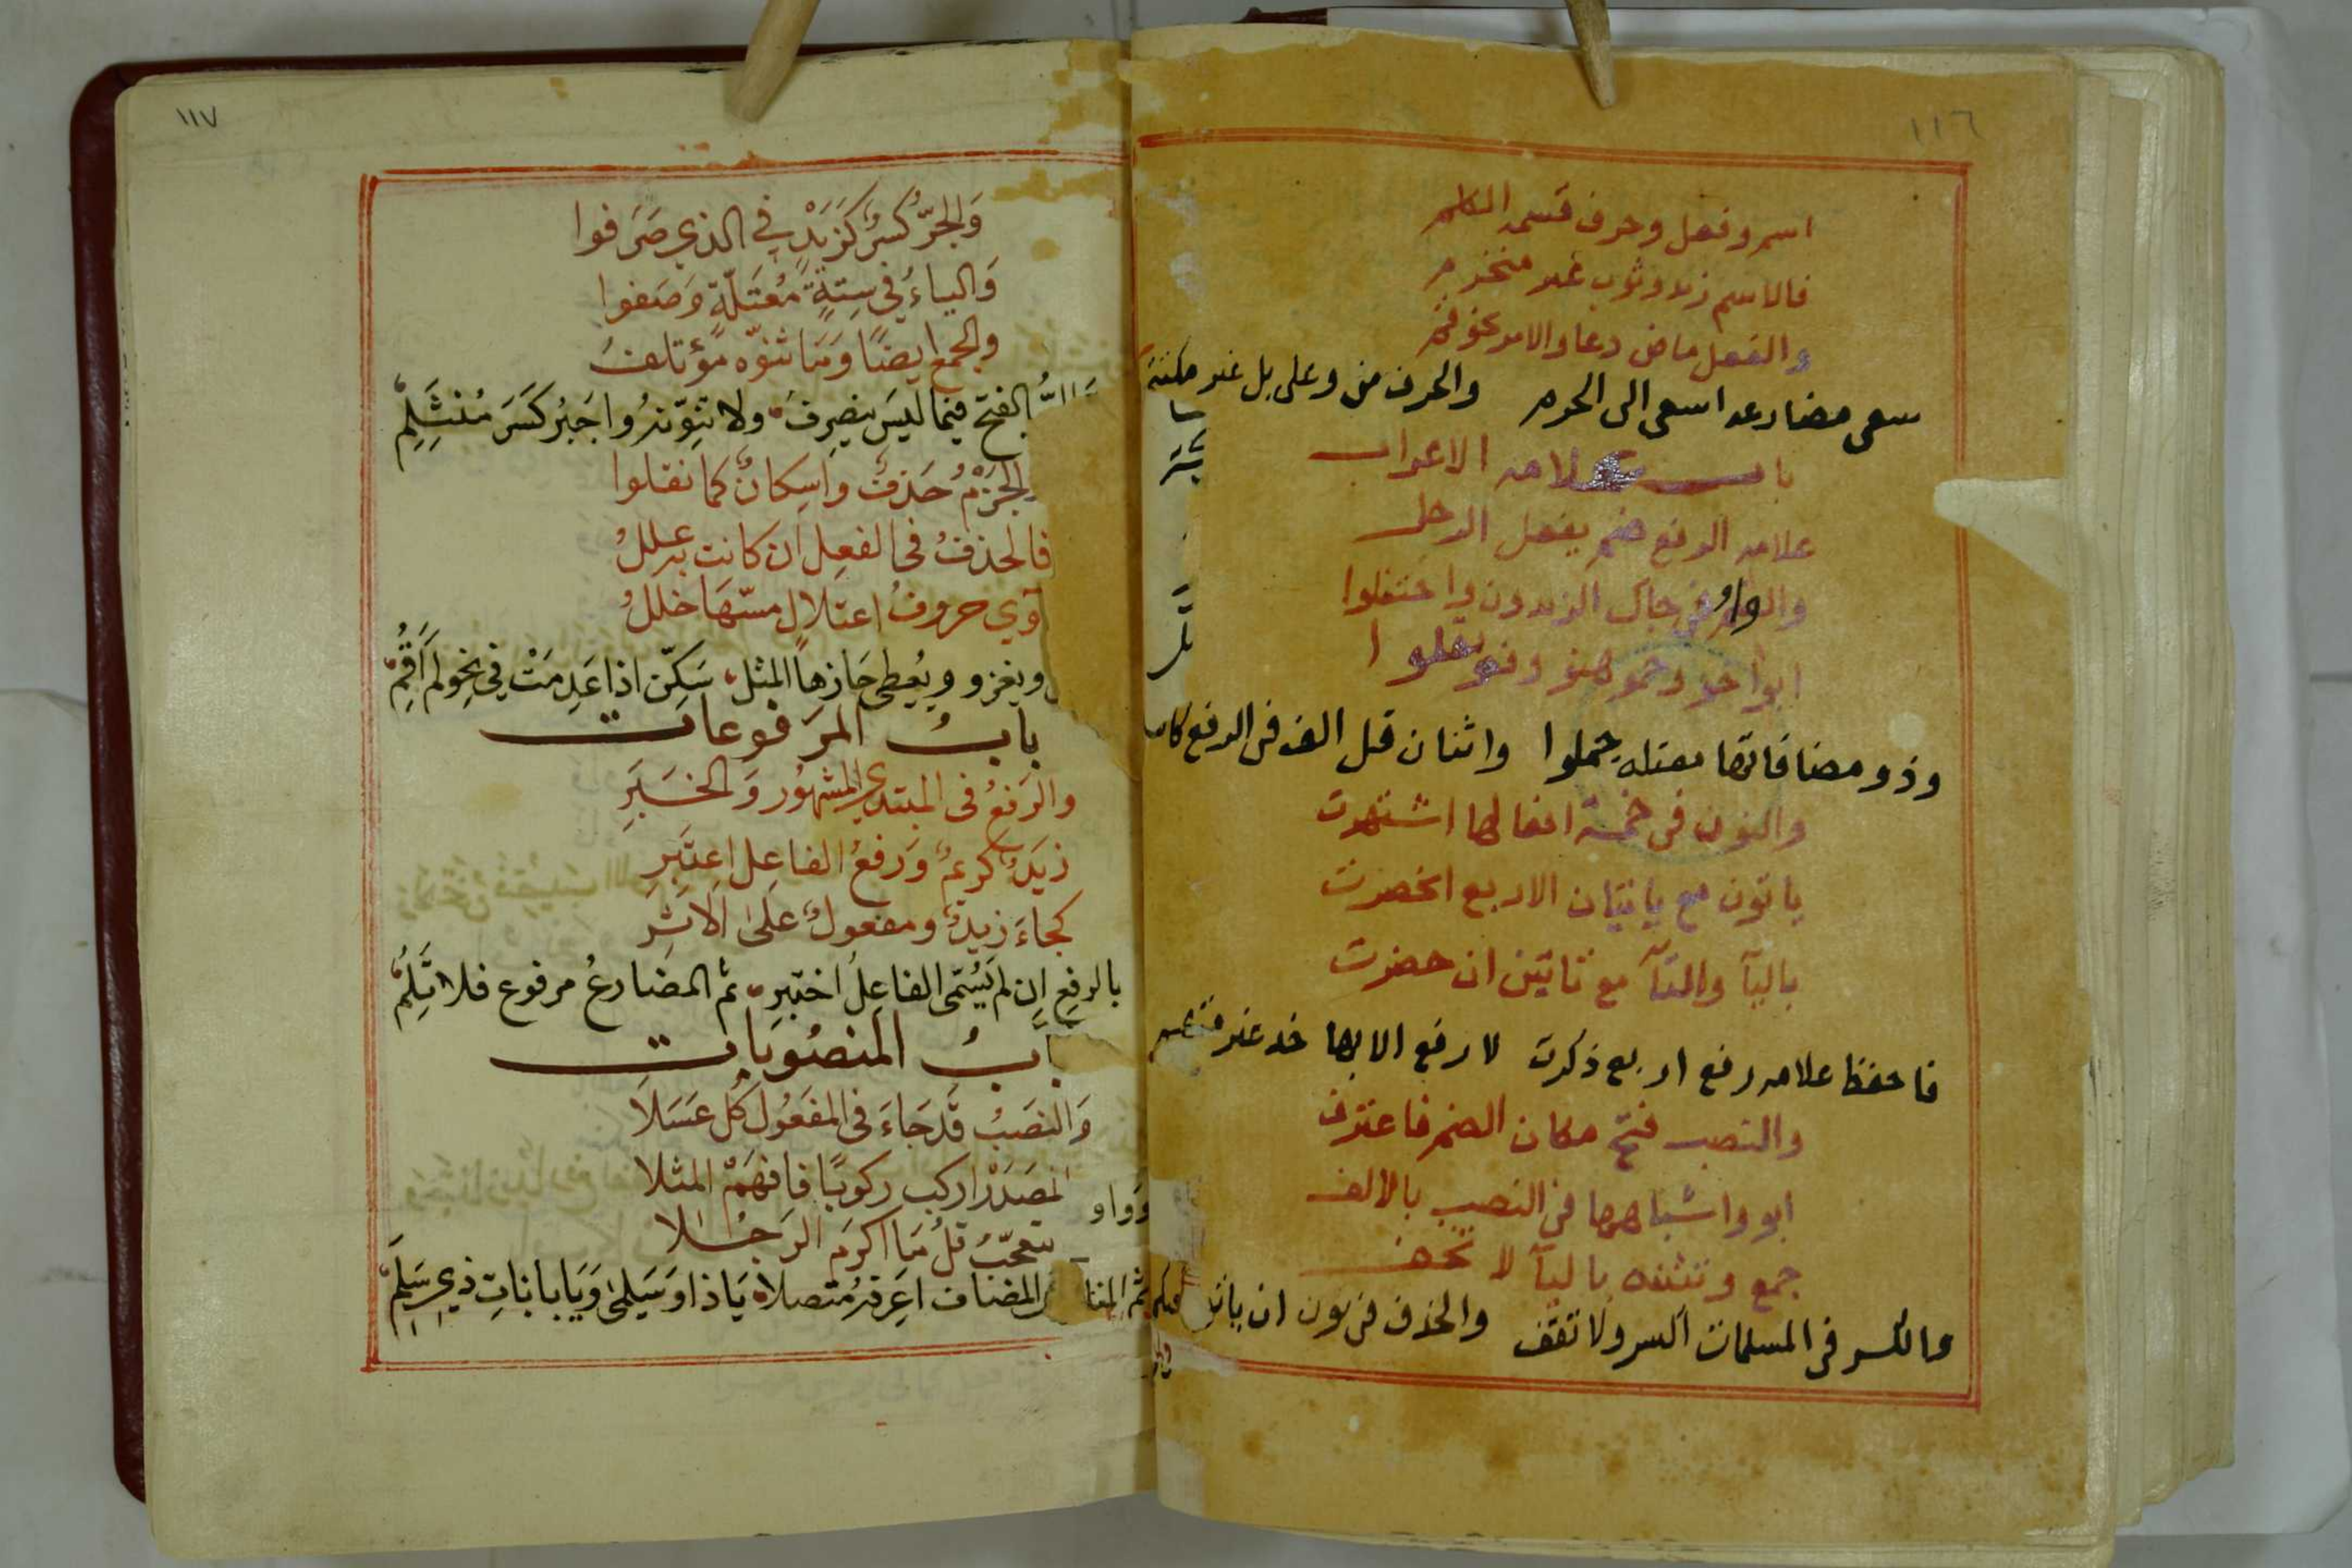 ١١٦
اسم وفعل وحرف قسمة الكلم
فالاسم زيد وثوب غير منخزم
والفعل ماض دعا والامر نحو قم
سعى مضارعه اسعى الى الحرم والحرف من وعلى بل غير مكتتم
باب علامة الاعراب
علامة الرفع ضم يفعل الرجل
والواو في جاك الزيدون واحتفلوا
ابو اخو وحمو هنو وفو
وذو مضافاتها معتلة حملوا واثنان قل الف في الرفع
والنون في خمسة افعالها اشتهرت
ياتون مع ياتيان الاربع انحصرت
باليآ والتآ مع تاتين ان حضرت
فاحفظ علامة رفع اربع ذكرت لا رفع الا بها خذ غير
والنصب فتح مكان الضم فاعترف
ابو واشباهها في النصب بالالف
جمع وتثنيه باليآ لا تخف
والكسر في المسلمات اكسر ولا تقف والحذف في نون ان
١١٧
وَالجَرُّ كَسرٌ كَزَيْدٍ في الذي صَرَفوا
وَالياءُ في سِتةٍ مُعْتَلّةٍ وَصَفوا
والجمع ايضًا وَمَا ثنوّه مؤتلفُ
الفتح فيما ليسَ ينصرِفُ ولا تنوّنهُ واجبُر كَسَر مُنثَلِمِ
والجَزْمُ حَذفٌ واسِكانٌ كما نقلوا
فالحذفُ في الفعلِ ان كانت به عللُ
آوي حروفُ اعتلالٍ مسّهَا خللُ
ويغزو ويُعطى جَازِهاً المثل سَكِّن اذا عَدِمَتْ في نحو لم اَقُمِ
بابُ المرَفوعات
والرَفعُ في المبتدي المشهُور وَالخَبَرِ
زيَدٌ كريمٌ ورَفعُ الفاعِل اعِتَبِرِ
كجاءَ زيدٌ ومفعولٌ على الاَثرِ
بالرفعِ اِن لم يُسَّمى الفاعِلُ اختبِرِ ثم المضارعُ مرفوع فلا تَلُمِ
بابُ المنصُوبات
وَالنصَبُ قَد جَاءَ في المفعُول كُل عَسَلاَ
المصَدَرْ اركب ركوبًا فافهَمْ المثلا
تعجّبٌ قلُ مَا اكرَم الرَجُلا
ثم المضاف اعرِفه مُتصلا يَا ذا وَسَيلمى وَيَا بانات ذي سَلِمَ